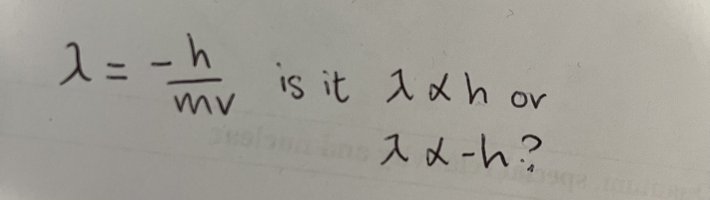 λ = -h/mv is it λ ∝ h or
λ ∝ -h?